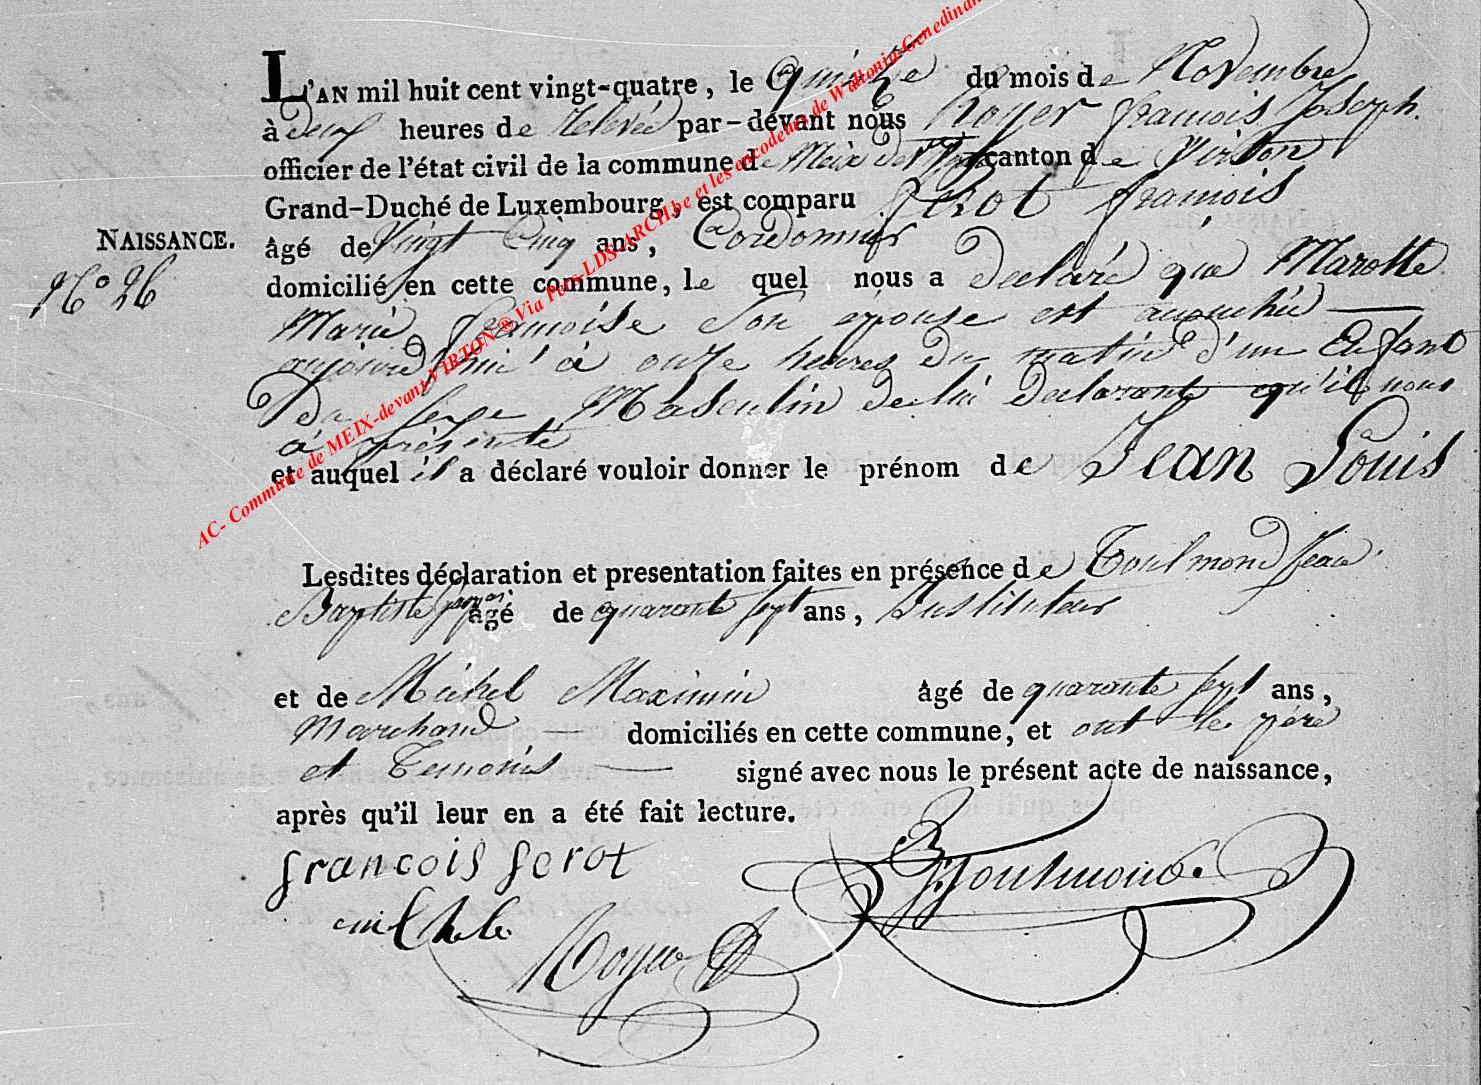 L'AN mil huit cent vingt-quatre, le quinze du mois de Novembre
à deux heures de relevée par-devant nous Royer françois Joseph.
officier de l'état civil de la commune de Meix dev^t canton de Virton
Grand-Duché de Luxembourg, est comparu ferot françois
NAISSANCE.
N° 26
âgé de Vingt Cinq ans, Cordonnier
domicilié en cette commune, le quel nous a declaré que Marotte
Marie françoise Son épouse est accouchée
aujourd'hui à onze heures du matin d'un Enfant
du sexe Masculin de lui declarant qu'il nous
a présenté
et auquel il a déclaré vouloir donner le prénom de Jean Louis
Lesdites déclaration et presentation faites en présence de Toulmond Jean
Baptiste âgé de quarante sept ans, Instituteur
et de Michel Maximin âgé de quarante sept ans,
Marchand domiciliés en cette commune, et ont le père
et Temoins signé avec nous le présent acte de naissance,
après qu'il leur en a été fait lecture.
françois ferot
Toulmond.
Royer
AC- Commune de MEIX-devant-VIRTON ® Via Pers-LDS-ARCH.be et les encodeurs de Wallonia-Genedinant